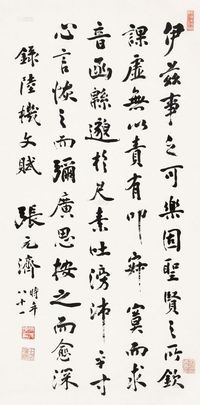 伊茲事之可樂固聖賢之所欽
課虛無以責有叩寂寞而求
音函緜邈於尺素吐滂沛乎寸
心言恢之而彌廣思按之而愈深
錄陸機文賦 張元濟 時年八十一